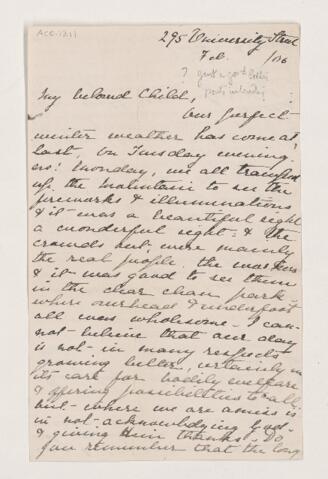 ACC-1211
295 University Street
Feb. /06
? quite a good letter
My beloved Child,
Our perfect
winter weather has come at
last. On Tuesday evening -
ers! Monday, we all
up the Mountain to see the
fireworks & illuminations
& it was a beautiful sight
a wonderful sight: & the
crowds were mainly
the real people, the
& it was good to see them
in the clear clean park -
where overhead & underfoot
all was wholesome. I can-
not believe that our day
is not in many respects
growing better, certainly in
its care for bodily welfare
& offering possibilities to all:
but where we are amiss is
in not acknowledging God -
& giving Him thanks. Do
you remember that the long